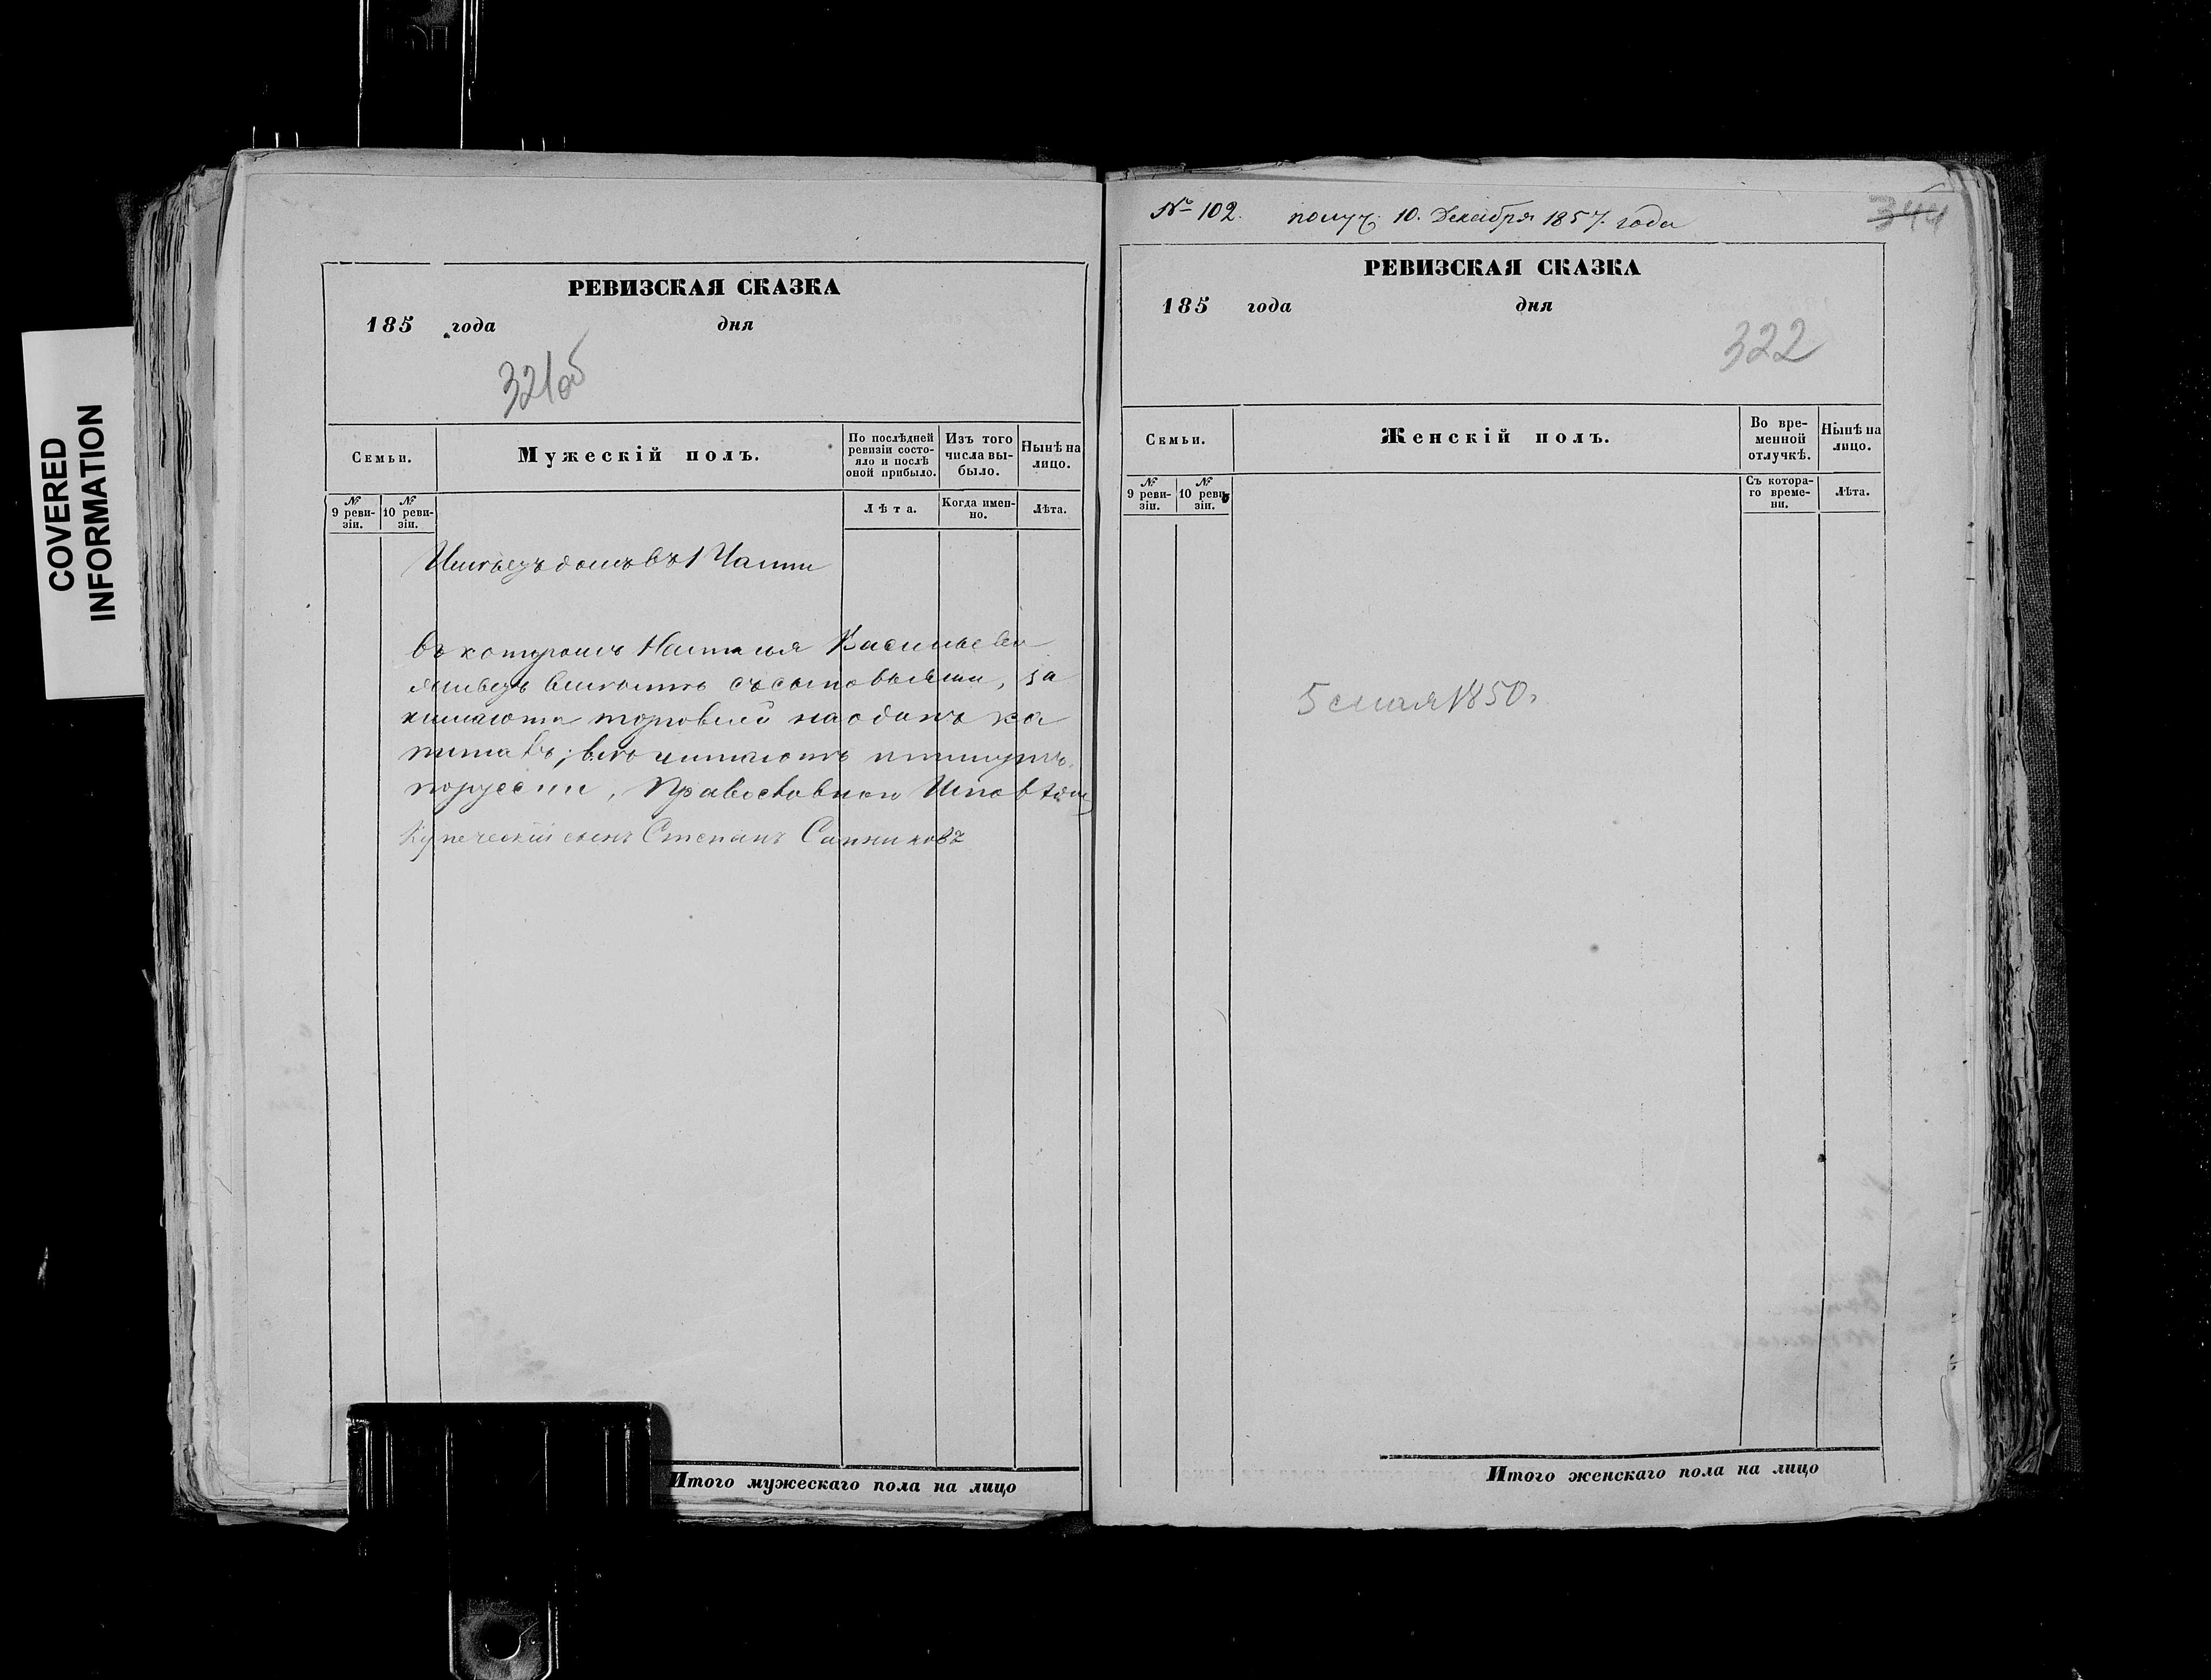 COVERED
INFORMATION
РЕВИЗСКАЯ СКАЗКА
185 года дня
321об
Семьи.
Мужескій полъ.
По послѣдней ревизіи состояло и послѣ оной прибыло.
Изъ того числа выбыло.
Нынѣ на лицо.
№ 9 ревизіи.
№ 10 ревизіи.
Лѣта.
Когда именно.
Лѣта.
Имѣетъ домъ въ 1 Части
въ которомъ Наталья Васильева
живетъ вмѣстѣ съ сыновьями, за
нимаются торговлей на одинъ ка
питалъ; всѣ читаютъ и пишутъ
поруски, Православнои Исповѣди
Купеческій сынъ Степанъ Сапниковъ
Итого мужескаго пола на лицо
№ 102. получ. 10. Декабря 1857. года
344
РЕВИЗСКАЯ СКАЗКА
185 года дня
322
Семьи.
Женскій полъ.
Во временной отлучкѣ.
Нынѣ на лицо.
№ 9 ревизіи.
№ 10 ревизіи.
Съ котораго времени.
Лѣта.
5 мая 1850г
Итого женскаго пола на лицо